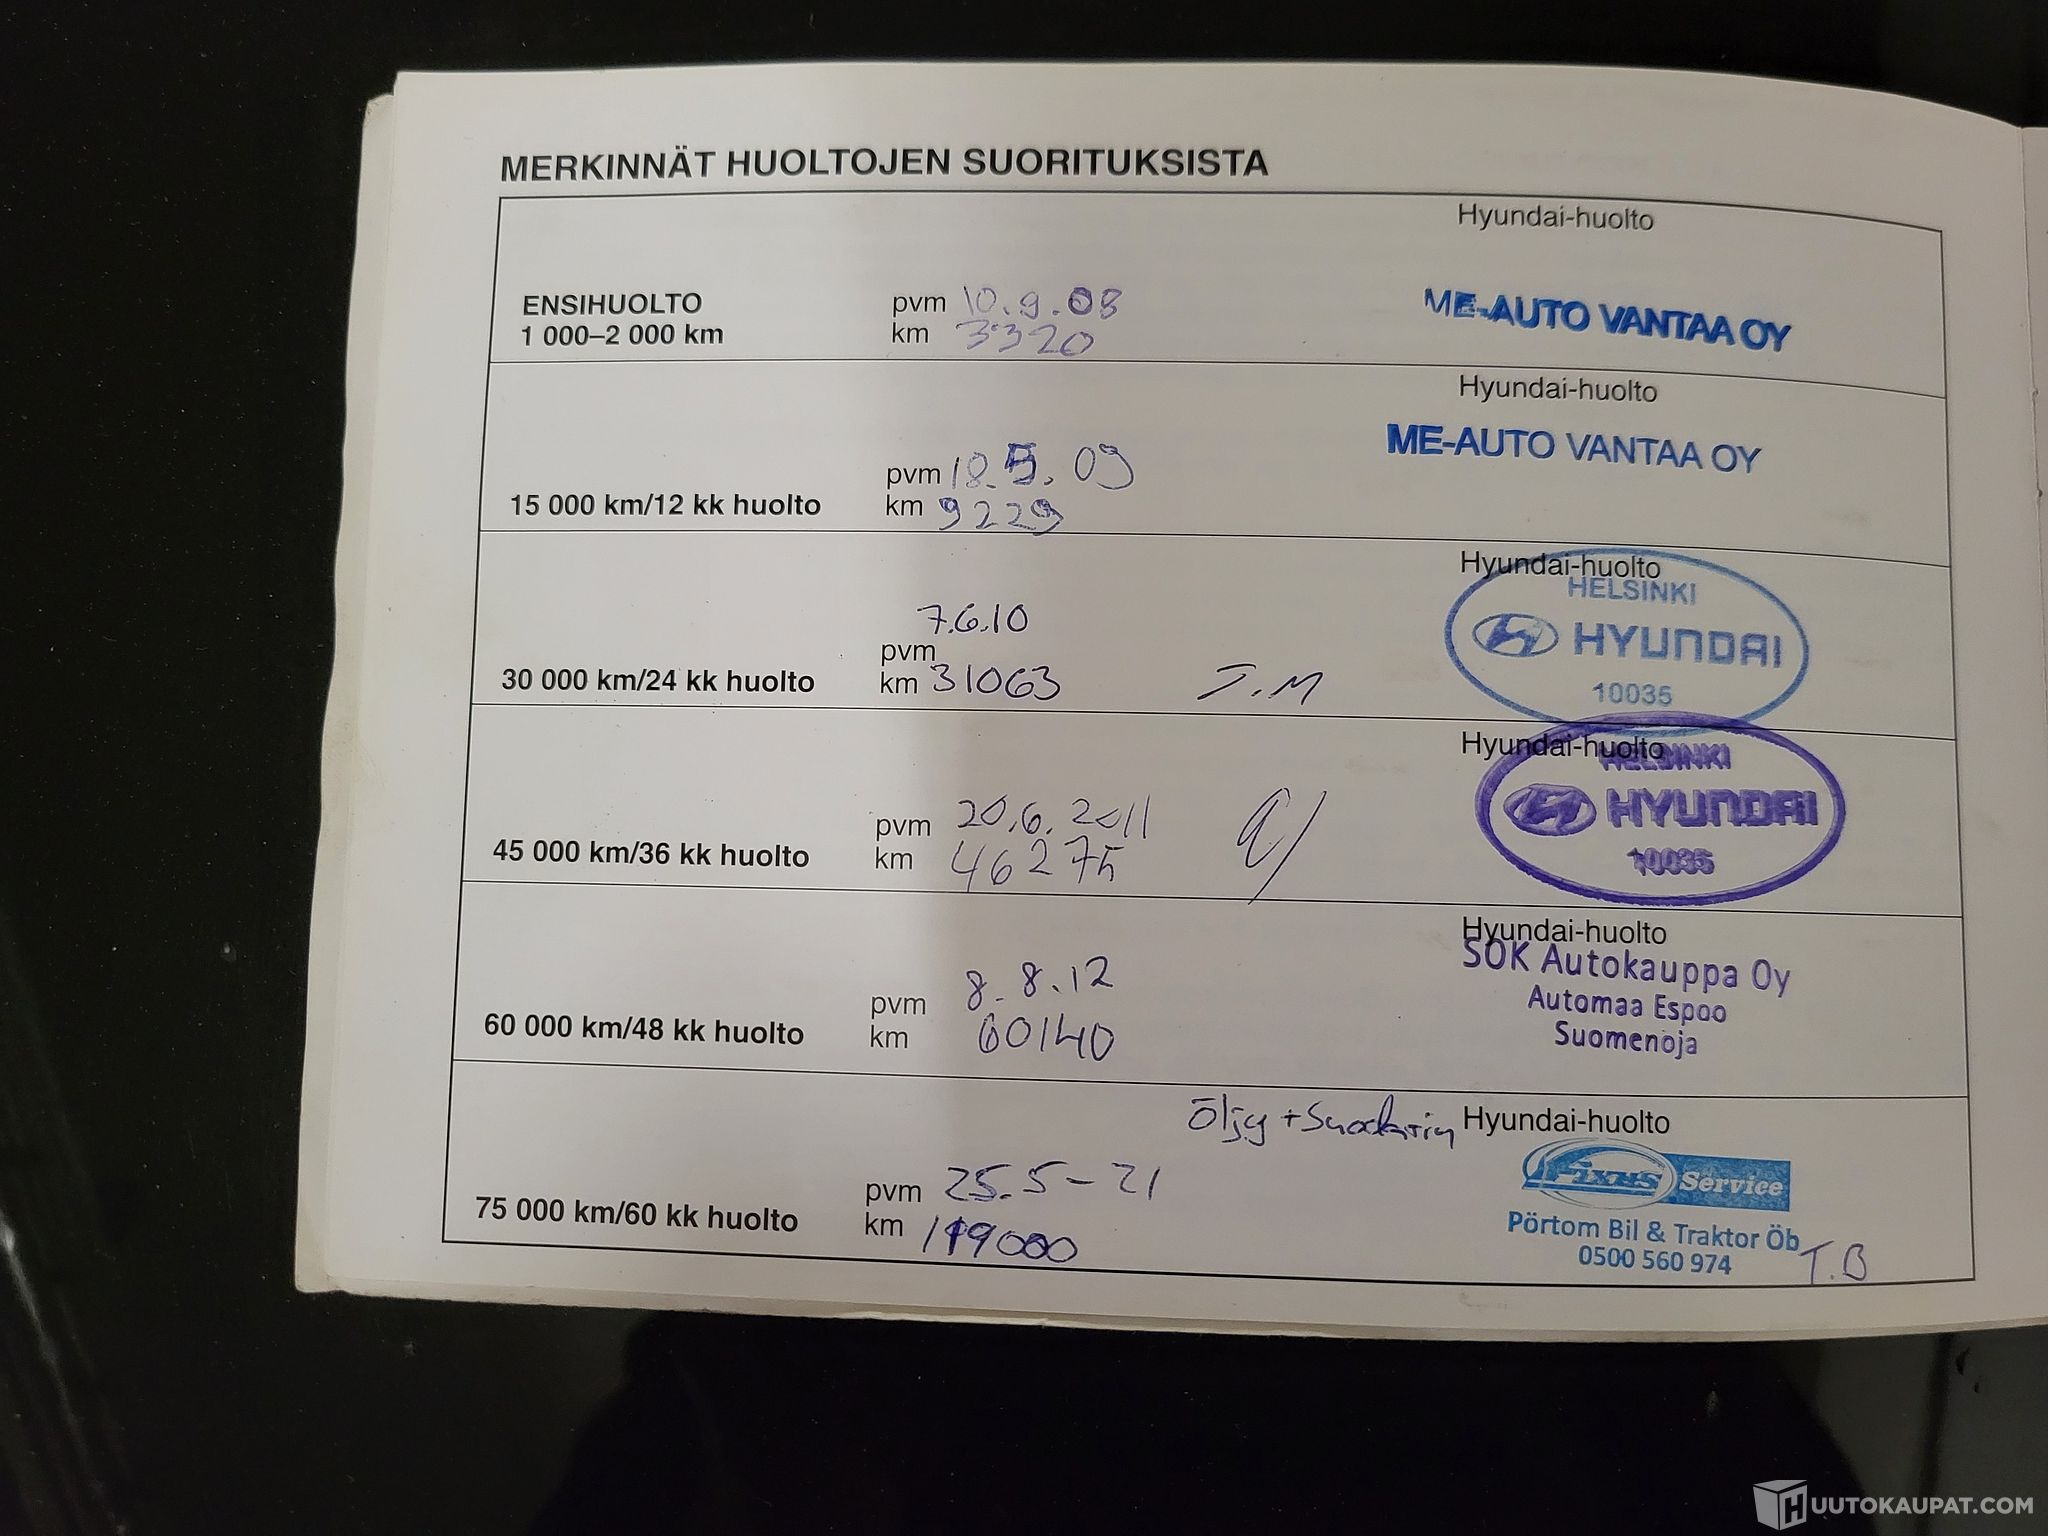 MERKINNÄT HUOLTOJEN SUORITUKSISTA
Hyundai-huolto
ENSIHUOLTO
1 000–2 000 km
pvm 10.9.08
km 3320
ME-AUTO VANTAA OY
Hyundai-huolto
15 000 km/12 kk huolto
pvm 18.5.09
km 9229
ME-AUTO VANTAA OY
Hyundai-huolto
30 000 km/24 kk huolto
7.6.10
pvm
km 31063
J.M
HELSINKI
HYUNDAI
10035
Hyundai-huolto
45 000 km/36 kk huolto
pvm 20.6.2011
km 46275
HELSINKI
HYUNDAI
10035
Hyundai-huolto
60 000 km/48 kk huolto
pvm 8.8.12
km 60140
SOK Autokauppa Oy
Automaa Espoo
Suomenoja
Öljy +
Hyundai-huolto
75 000 km/60 kk huolto
pvm 25.5-21
km 119000
Fixus Service
Pörtom Bil & Traktor Öb
0500 560 974
T.B
HUUTOKAUPAT.COM